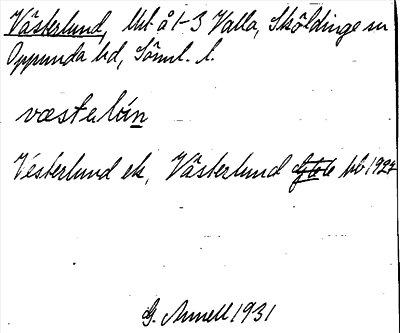 Västerlund, Utl å 1-3 Valla, Sköldinge sn
Oppunda hd, Söml. l.
væstəlún
Vesterlund ek, Västerlund hb 1927
G. Annell 1931